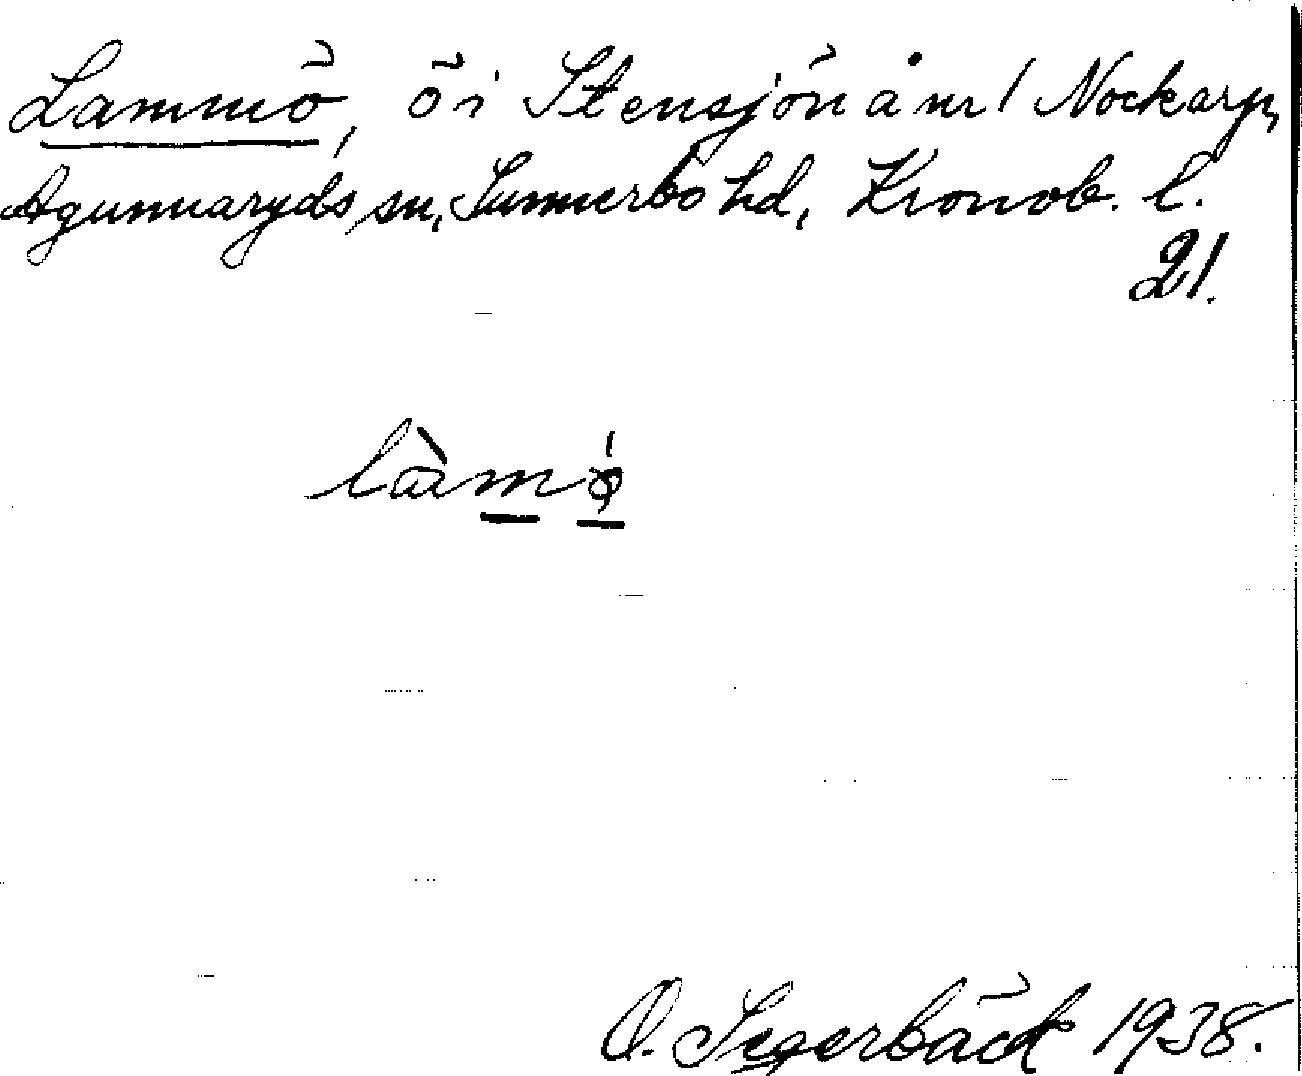 Lammö, ö i Stensjön å nr 1 Nockarp,
Agunnaryds sn, Sunnerbo hd, Kronob. l.
21.
làmö́
O. Segerbäck 1938.